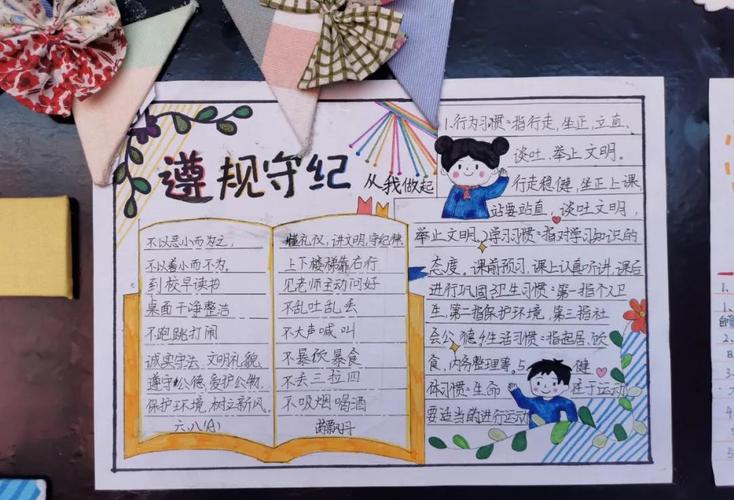 遵规守纪
从我做起
不以恶小而为之,
不以善小而不为。
到校早读书
桌面干净整洁
不跑跳打闹
诚实守法、文明礼貌、
遵守公德、爱护公物、
保护环境、树立新风。
六、八(A)
懂礼仪,讲文明,守纪律
上下楼梯靠右行
见老师主动问好
不乱吐乱丢
不大声喊叫
不暴饮暴食
不丢三拉四
不吸烟喝酒
1.行为习惯:指行走,坐正,立直、
谈吐,举止文明。
行走稳健,坐正上课
站要站直,谈吐文明,
举止文明。2)学习习惯:指对学习知识的
态度。课前预习,课上认真听讲,课后
进行巩固。3卫生习惯:第一指个人卫
生,第二指保护环境,第三指社
会公德。4生活习惯:指起居,饮
食,内务整理等。5 健
体习惯:生命在于运动
要适当的进行运动
1.
1.
2.